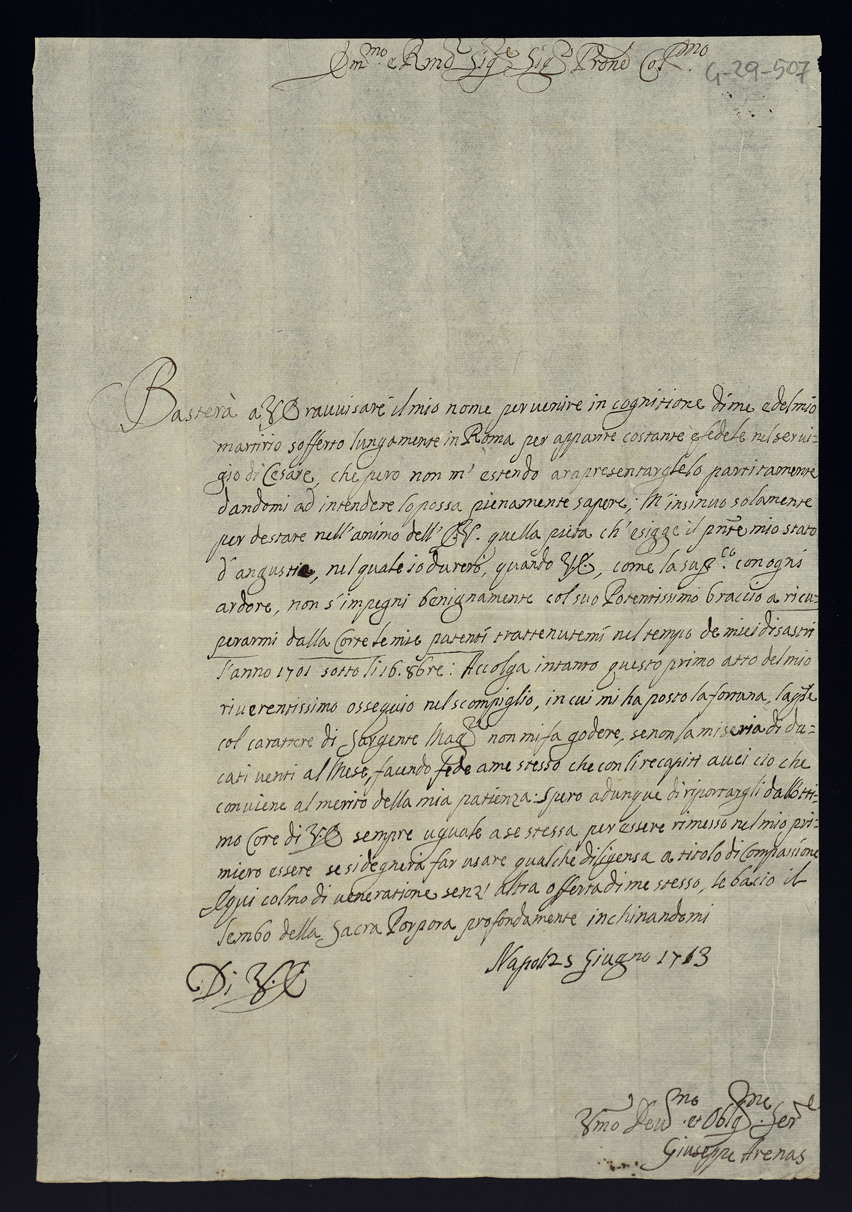 Em.mo e Rmo Sig.re Sig.r Prone Col.mo
G-29-507
Basterà a V.E. ravvisare il mio nome per venire in cognitione di me e del mio
martirio sofferto lungamente in Roma per costante e fedele nel servi-
gio di Cesare, che però non m'estendo a rapresentarglelo partitamente
dandomi ad intendere lo possa pienamente sapere; M'insinuo solamente
per destare nell'animo dell'E.V. quella pietà ch'esigge il pnte mio stato
d'angustie, nel quale io durerò, quando V.E., come la supp.co con ogni
ardore, non s'impegni benignamente col suo Potentissimo braccio a ricu-
perarmi dalla Corte le mie patenti trattenutemi nel tempo de miei disastri
l'anno 1701 sotto li 16. 8bre: Accolga intanto questo primo atto del mio
riverentissimo ossequio nel scompiglio, in cui mi ha posto la fortuna, la
col carattere di Sargente Mag.re non mi fa godere, se non la miseria di du-
cati venti al Mese, facendo fede a me stesso che con li recapiti avrei ciò che
conviene al merito della mia patienza: Spero adunque di riportargli dall'Otti-
mo Core di V.E. sempre uguale a se stessa per essere rimesso nel mio pri-
miero essere se si degnerà far usare qualche diligensa a titolo di Compassione
E qui colmo di veneratione senz'altra offerta di me stesso, le bacio il
lembo della Sacra Porpora profondamente inchinandomi
Napoli 25 Giugno 1713
Di V.E.
Vmo Dev.mo et Oblig.me Ser.re
Giuseppe Arenas